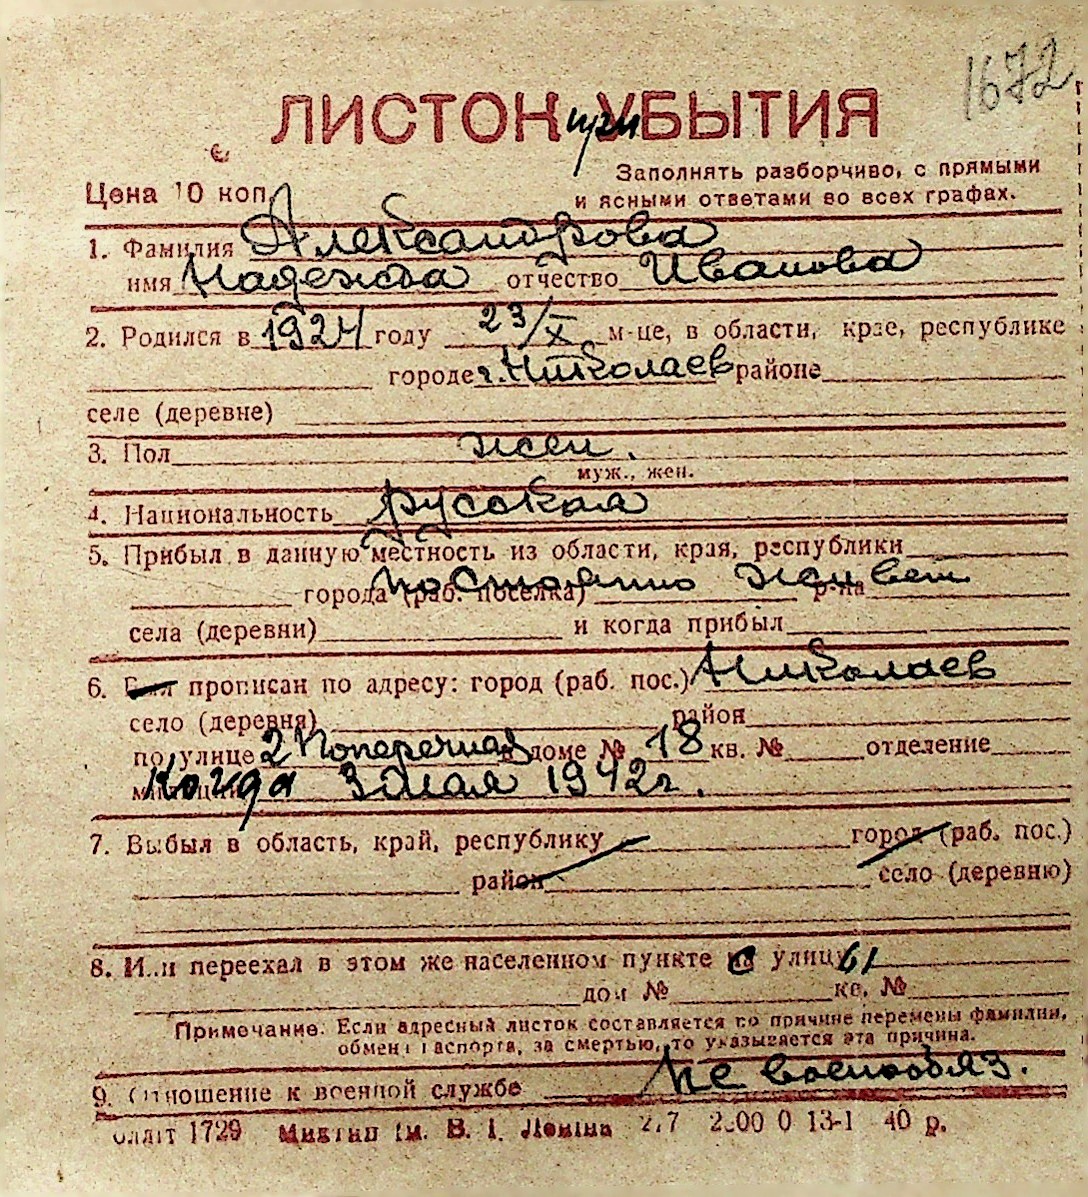 1672
ЛИСТОК при УБЫТИЯ
Цена 10 коп.
Заполнять разборчиво, с прямыми
и ясными ответами во всех графах.
1. Фамилия Александрова
имя Надежда отчество Иванова
2. Родился в 1924 году 23/X м-це, в области, крае, республике
городе г. Николаев районе
селе (деревне)
3. Пол жен.
муж., жен.
4. Национальность русская
5. Прибыл в данную местность из области, края, республики
постоянно живет
города (раб. поселка) р-на
села (деревни) и когда прибыл
6. Был прописан по адресу: город (раб. пос.) Николаев
село (деревня) район
по улице 2 Поперечная в доме № 18 кв. № отделение
милиции Когда 3 мая 1942 г.
7. Выбыл в область, край, республику город (раб. пос.)
район село (деревню)
8. Или переехал в этом же населенном пункте с улицы
дом № кв. №
Примечание: Если адресный листок составляется по причине перемены фамилии,
обмена паспорта, за смертью, то указывается эта причина.
9. Отношение к военной службе не военнобяз.
1729 ім. В. І. Леніна 13-1 40 р.